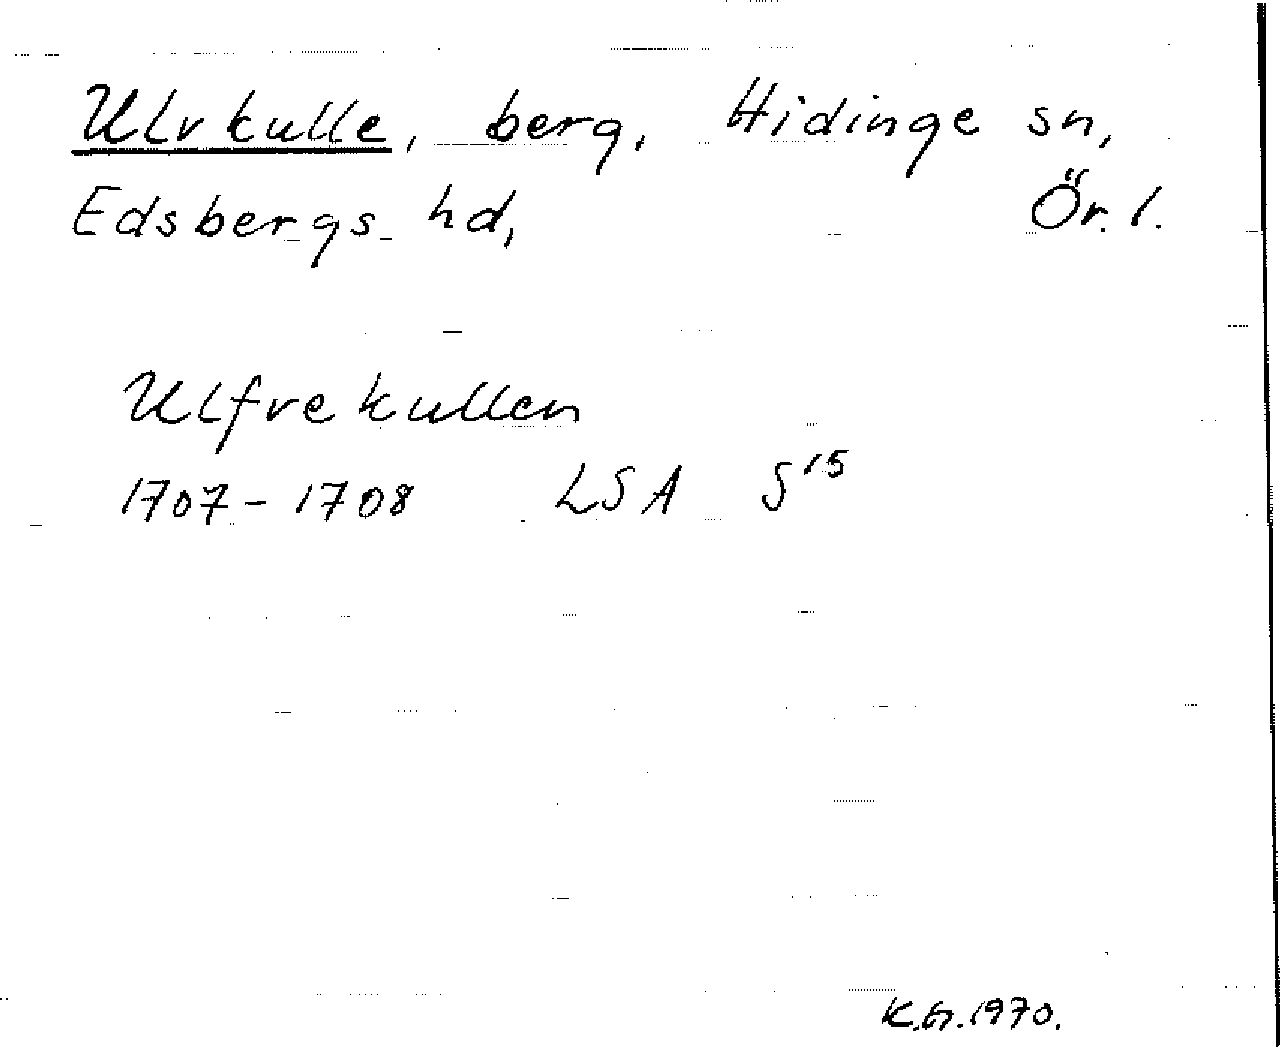 Ulvkulle, berg, Hidinge sn,
Edsbergs hd, Ör. l.
Ulfvekullen
1707-1708 LSA S¹⁵
K.G. 1970.